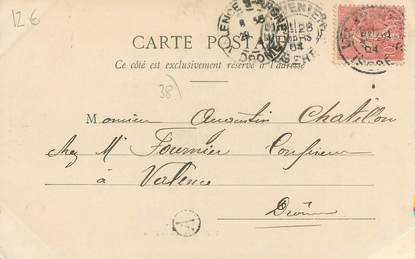 12 €
CARTE POSTALE
Ce côté est exclusivement réservé à l'adresse
38)
Monsieur Augustin Chatillon
chez Mr Fournier Confiseur
à Valence
Drôme